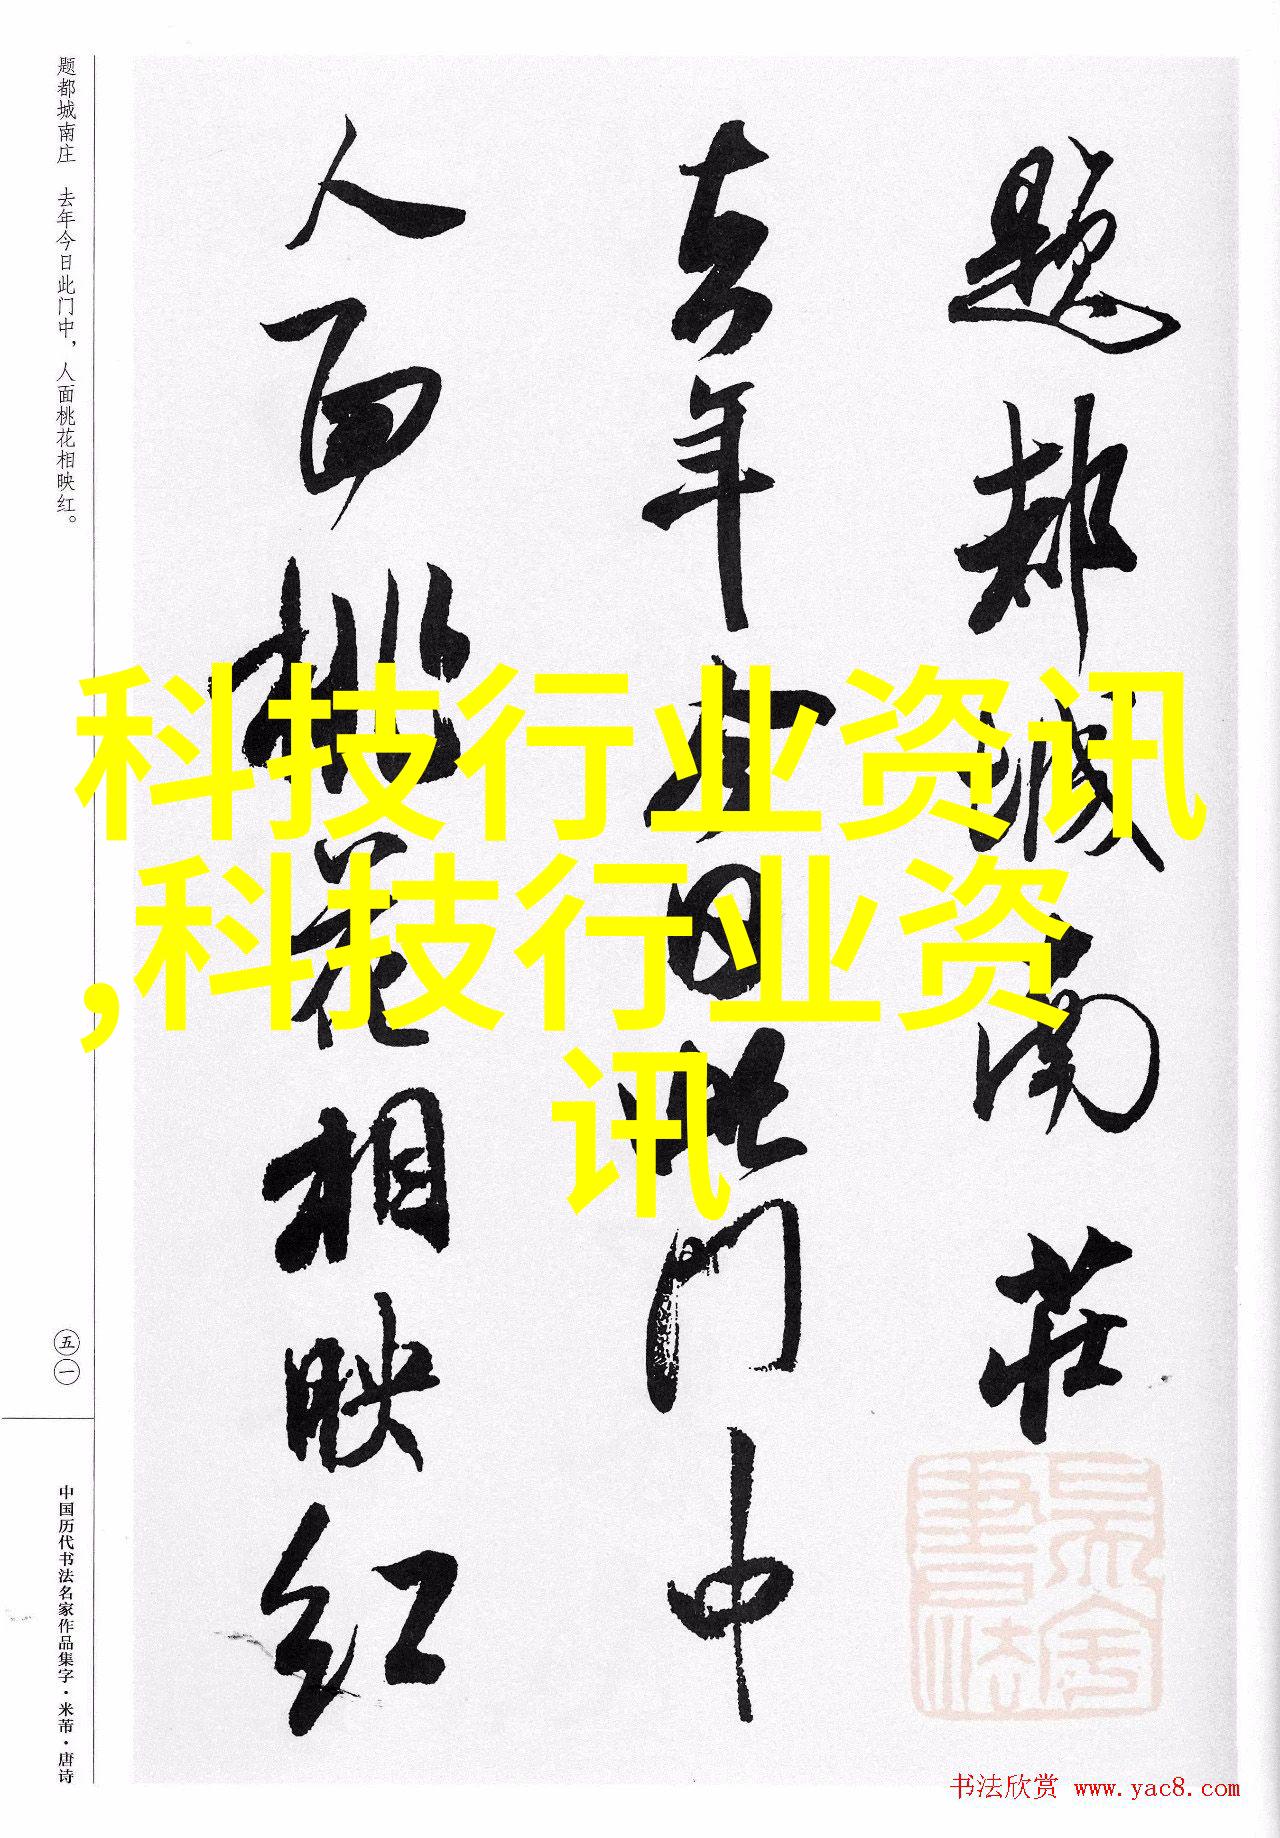 题都城南庄　去年今日此门中，人面桃花相映红。
五一
中国历代书法名家作品集字·米芾·唐诗
題都城南莊
去年今日此門中
人面桃花相映红
科技行业资讯
,科技行业资
讯
书法欣赏 www.yac8.com